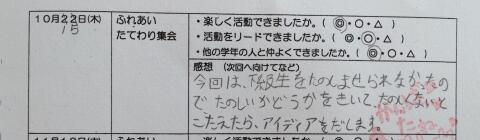 10月22日(木) ふれあい
15 たてわり集会
・楽しく活動できましたか。(◎・○・△)
・活動をリードできましたか。(◎・○・△)
・他の学年の人と仲よくできましたか。(◎・○・△)
感想 (次回へ向けてなど)
今回は、下級生をたのしませられなかったの
で たのしいかどうかをきいて、たのしくないと
こたえたら、アイディアをだします。
ふれあい
・楽しく活動できましたか。(◎・○・△)